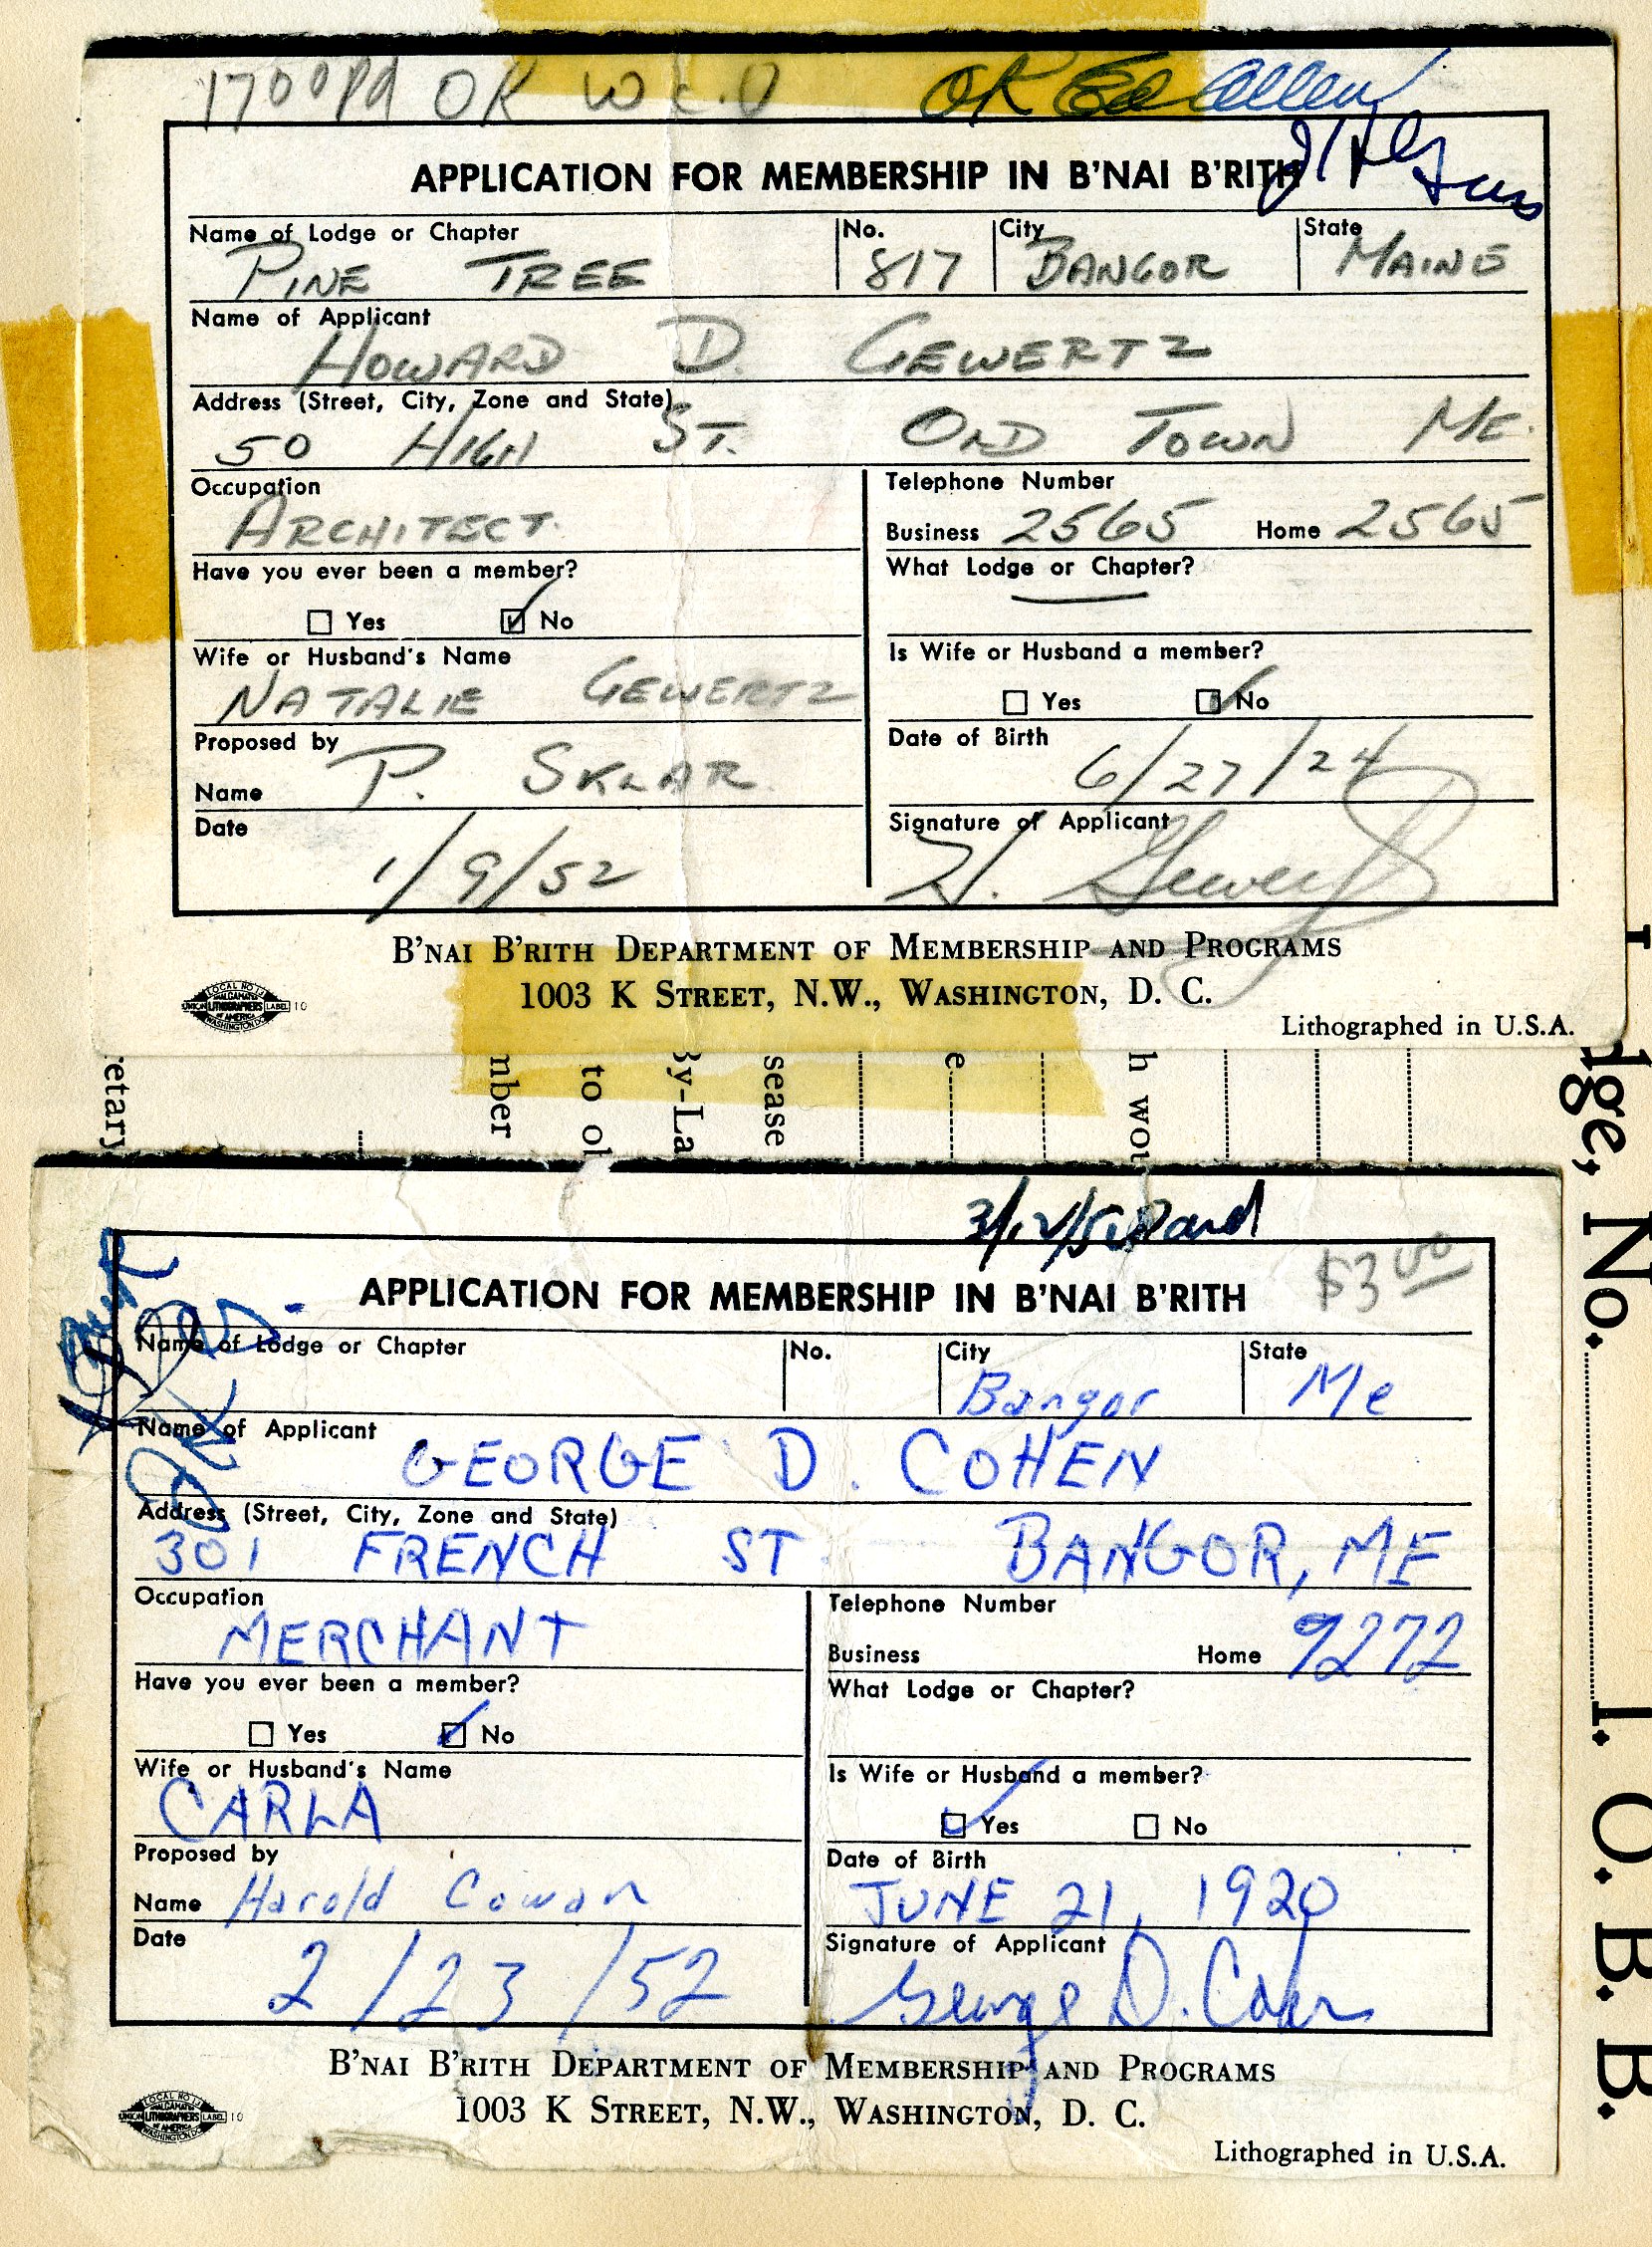 1700 Pd OK W.C.O OK Ed Allen
APPLICATION FOR MEMBERSHIP IN B'NAI B'RITH
Name of Lodge or Chapter No. City State
PINE TREE 817 BANGOR MAINE
Name of Applicant
HOWARD D. GEWERTZ
Address (Street, City, Zone and State)
50 HIGH ST. OLD TOWN ME.
Occupation Telephone Number
ARCHITECT. Business 2565 Home 2565
Have you ever been a member? What Lodge or Chapter?
Yes No
Wife or Husband's Name Is Wife or Husband a member?
NATALIE GEWERTZ Yes No
Proposed by Date of Birth
Name P. SKLAR 6/27/24
Date Signature of Applicant
1/9/52 H. Gewertz
B'NAI B'RITH DEPARTMENT OF MEMBERSHIP AND PROGRAMS
1003 K STREET, N.W., WASHINGTON, D. C.
Lithographed in U.S.A.
etary
mber
to ol
By-La
sease
e
h wou
dge, No. I. O. B. B.
$3 00
APPLICATION FOR MEMBERSHIP IN B'NAI B'RITH
Name of Lodge or Chapter No. City State
Bangor Me
Name of Applicant
GEORGE D. COHEN
Address (Street, City, Zone and State)
301 FRENCH ST. BANGOR, ME
Occupation Telephone Number
MERCHANT Business Home 9272
Have you ever been a member? What Lodge or Chapter?
Yes No
Wife or Husband's Name Is Wife or Husband a member?
CARLA Yes No
Proposed by Date of Birth
Name Harold Cowan JUNE 21, 1920
Date Signature of Applicant
2/23/52 George D. Cohen
B'NAI B'RITH DEPARTMENT OF MEMBERSHIP AND PROGRAMS
1003 K STREET, N.W., WASHINGTON, D. C.
Lithographed in U.S.A.